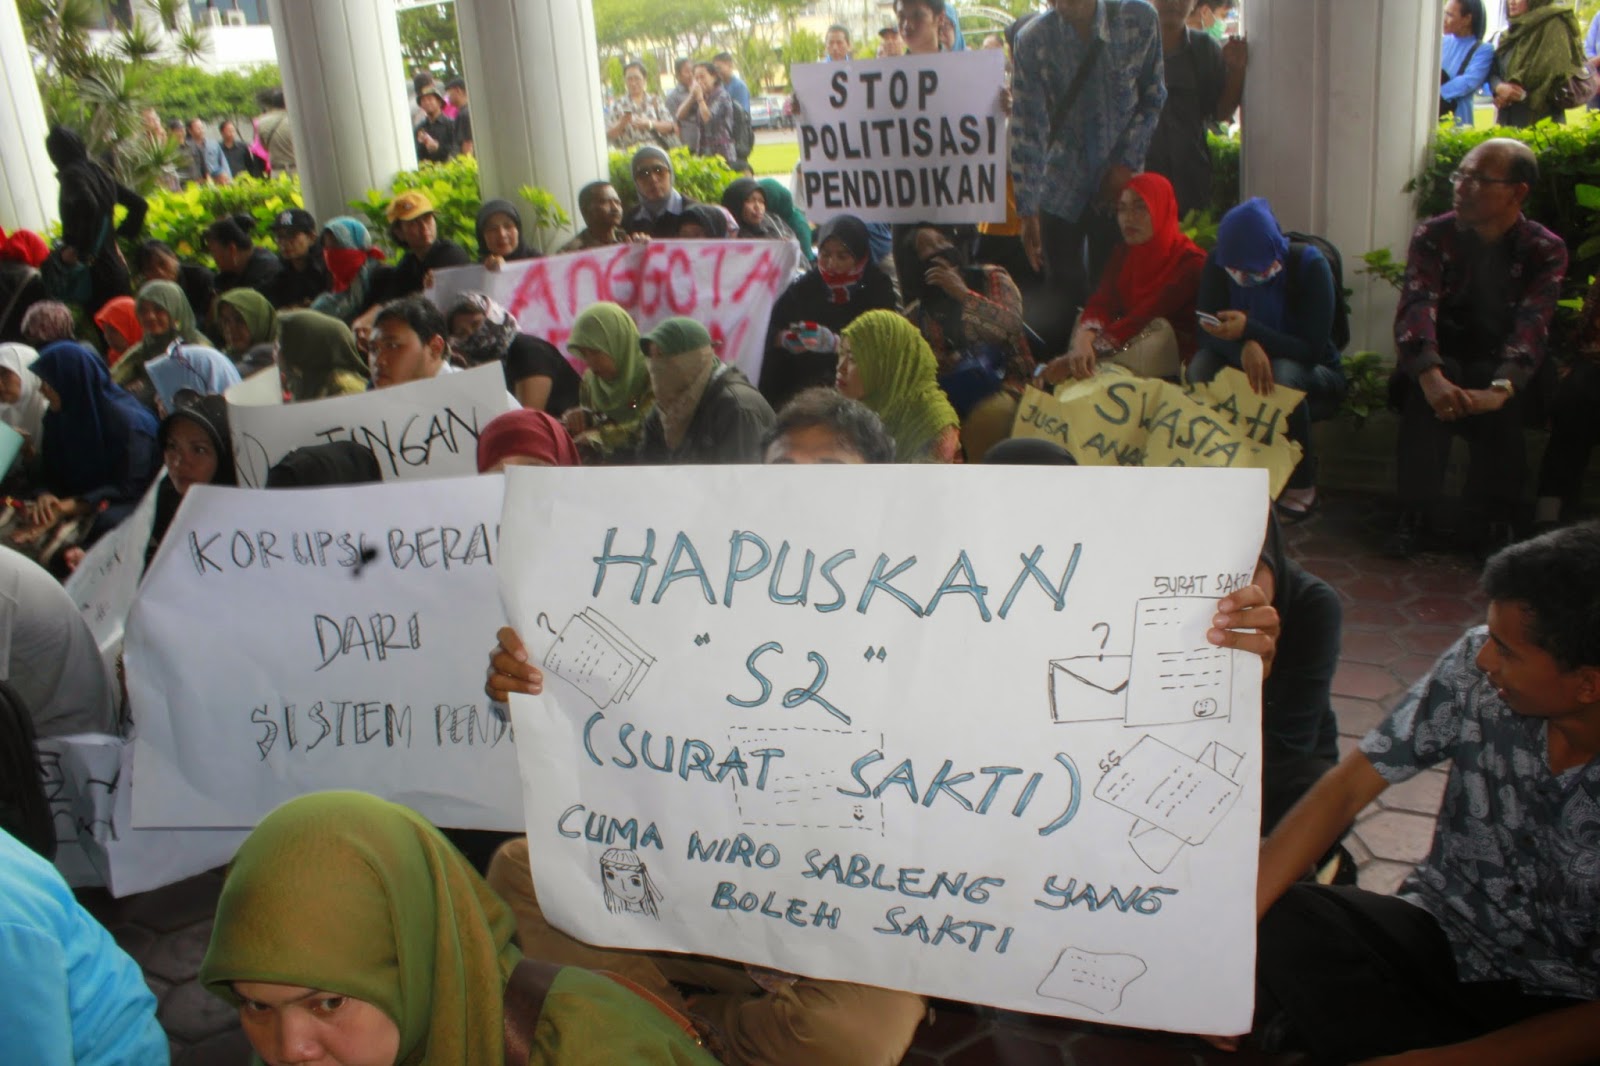 STOP
POLITISASI
PENDIDIKAN
ANGGOTA
TINGAN
SWASTA
JUGA ANAK
KORUPSI
DARI
SISTEM
HAPUSKAN
"S2"
(SURAT SAKTI)
CUMA WIRO SABLENG YANG
BOLEH SAKTI
SURAT SAKTI
?
?
SS